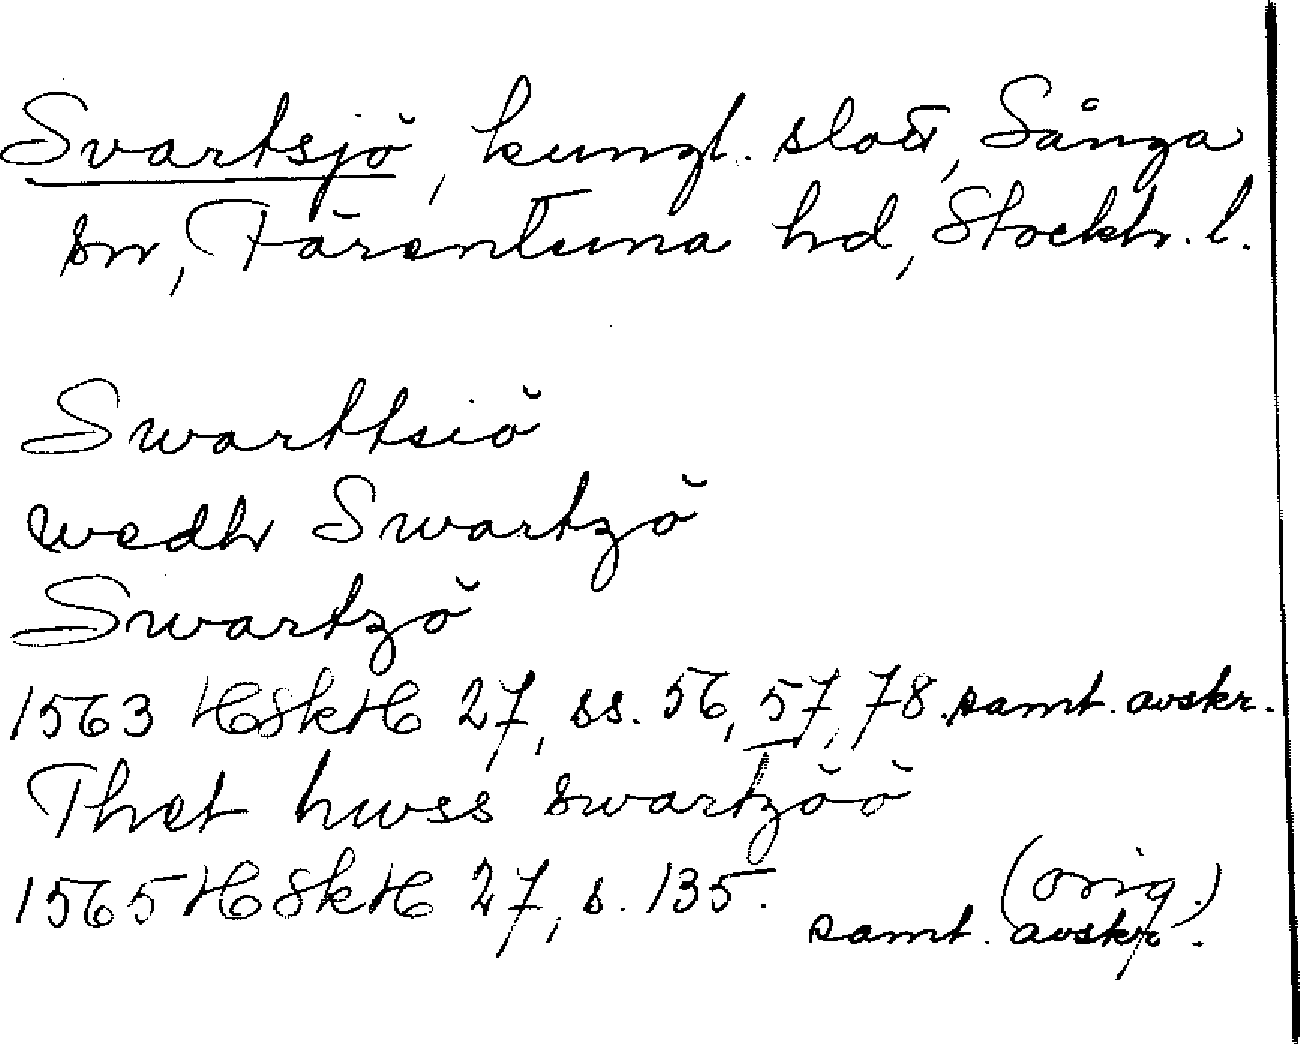 Svartsjö, kungl. slott, Sånga
sn, Färentuna hd, Stockh. l.
Swarttsiö
wedh Swartzö
Swartzö
1563 HSkH 27, ss. 56, 57, 78. samt. avskr.
Thet hwss swartzöö
1565 HSkH 27, s. 135. (orig.)
samt. avskr.